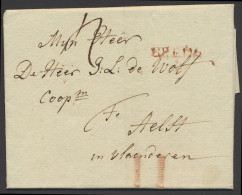 3
Myn Heer
De Heer J. L. de Wolf
Coopm
Te
Aelst
in vlaenderen